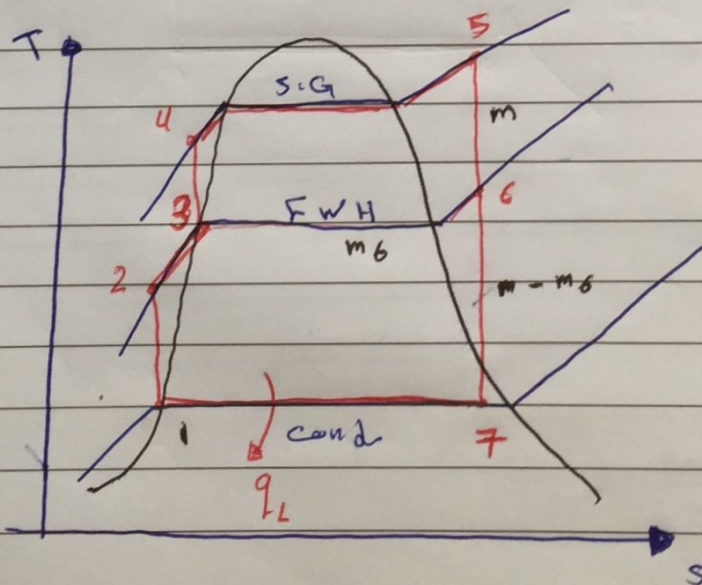 T
5
S.G
4
m
3
FWH
6
m6
2
m - m6
1
cond
7
qL
s